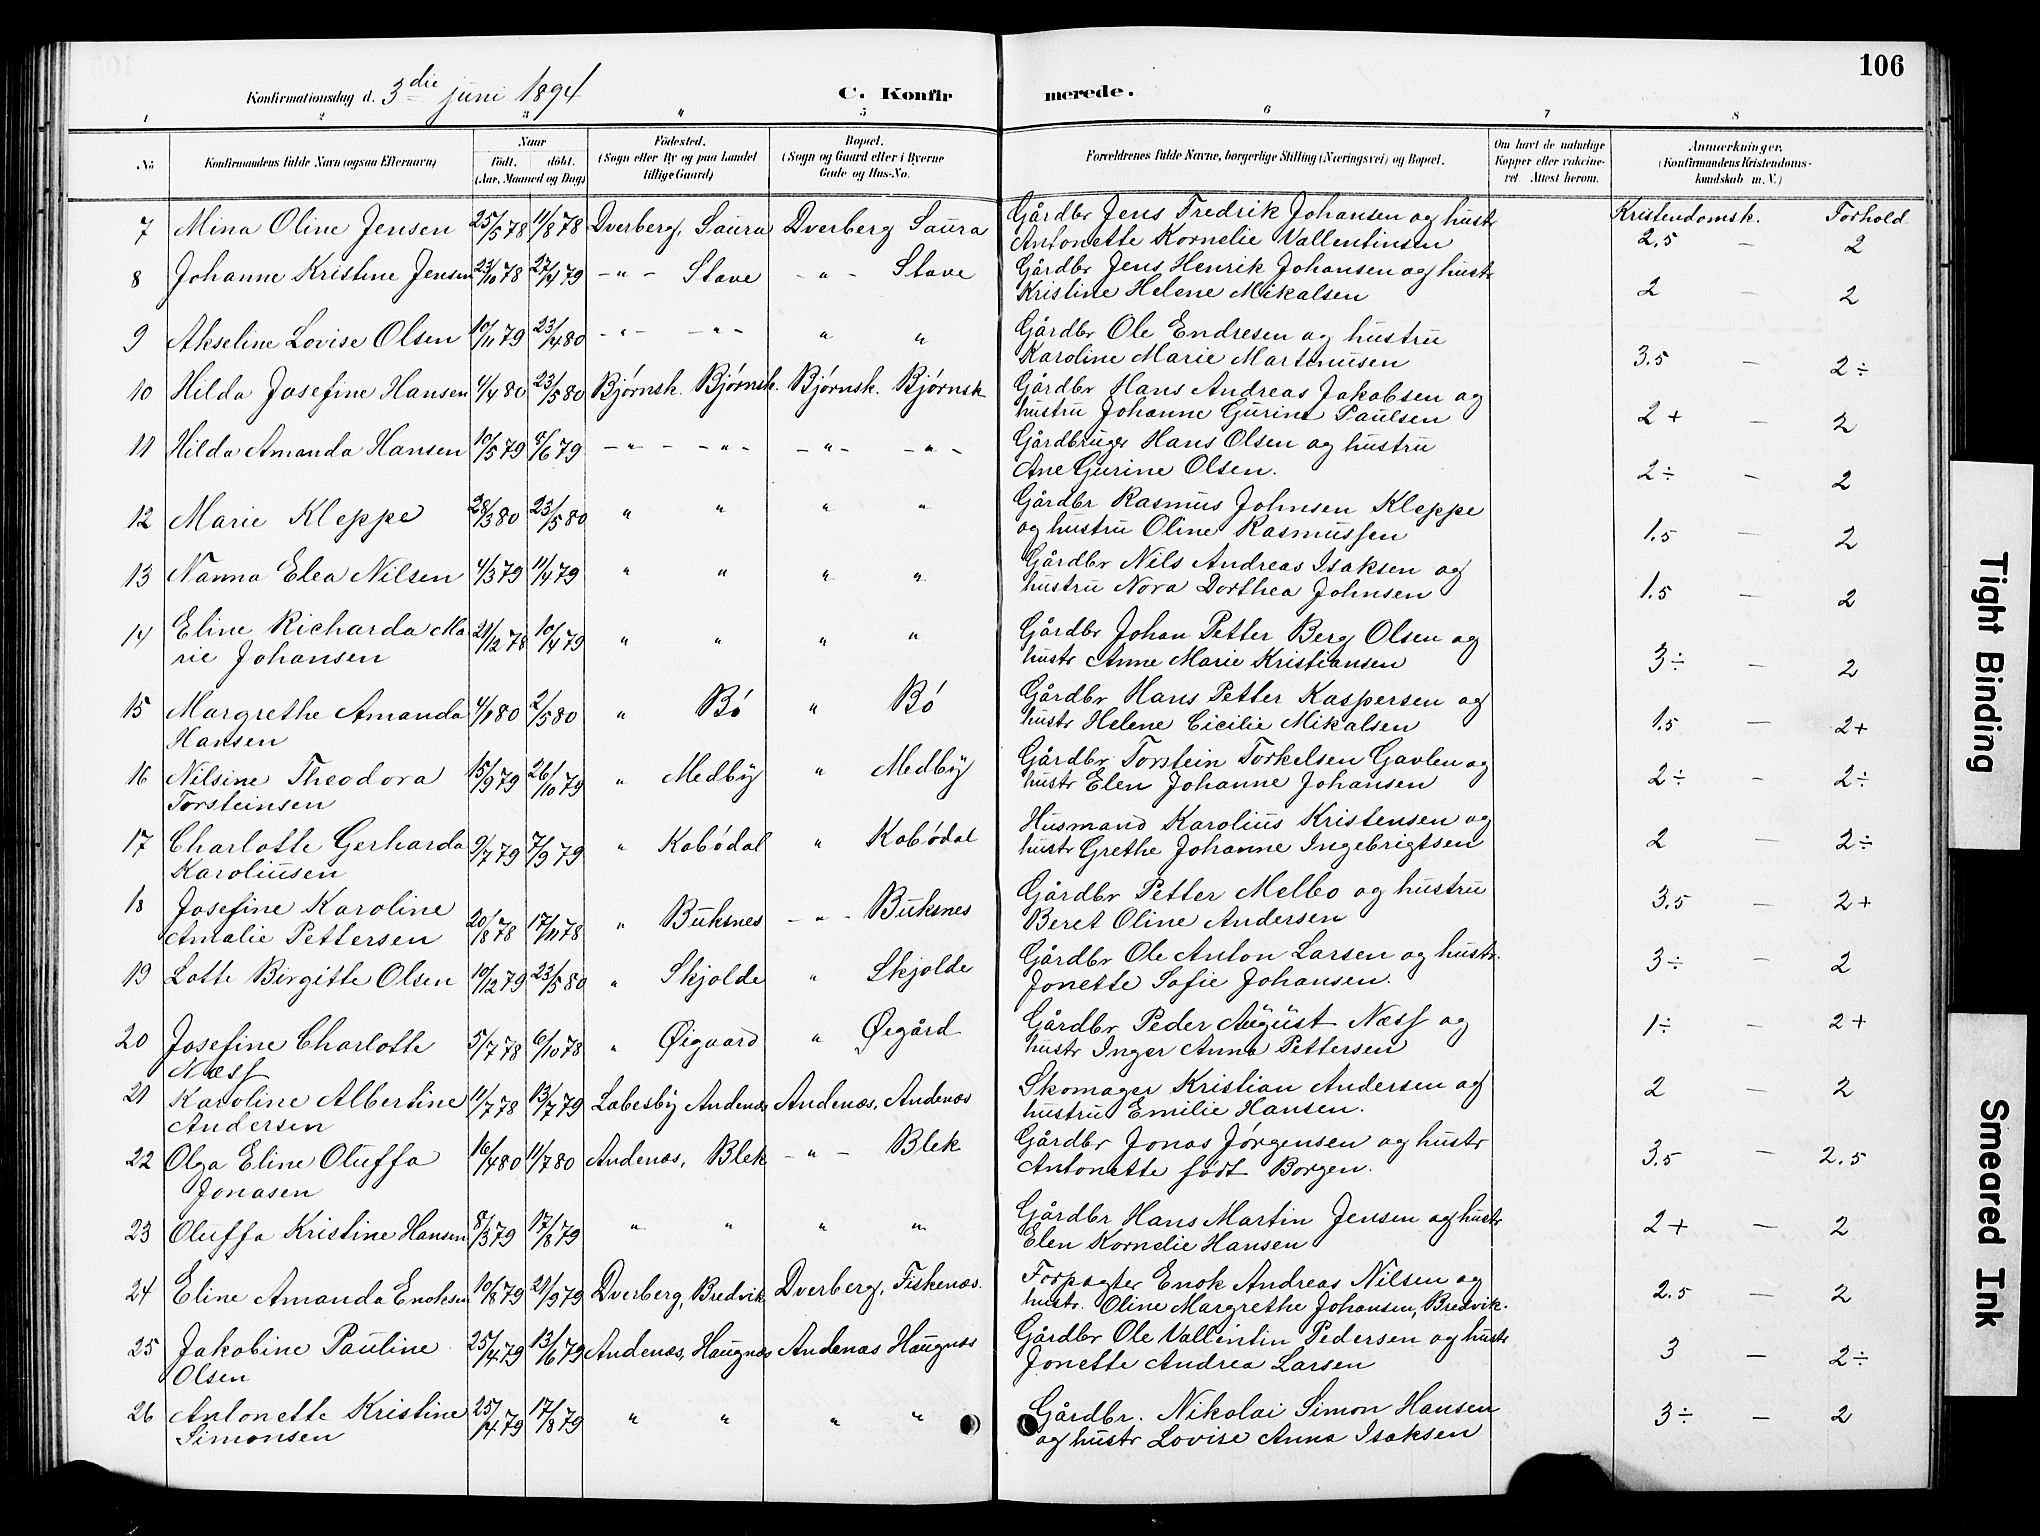 106
Konfirmationsdag d. 3die juni 1894 C. Konfirmerede.
1 2 3 4 5 6 7 8
No Konfirmandens fulde Navn (ogsaa Efternavn) Naar födt. döbt. (Aar, Maaned og Dag) Födested. (Sogn eller By og paa Landet tillige Gaard) Bopæl. (Sogn og Gaard eller i Byerne Gade og Hus-No. Forældrenes fulde Navne, borgerlige Stilling (Næringsvei) og Bopæl. Om havt de naturlige Kopper eller vakcineret. Attest herom. Anmærkninger. (Konfirmandens Kristendomskundskab m. V.)
Kristendomsk. Forhold
7 Mina Oline Jensen 25/5 78 11/8 78 Dverberg, Saura Dverberg Saura Gårdbr Jens Fredrik Johansen og hustr
Antonette Kornelie Vallentinsen 2.5 – 2
8 Johanne Kristine Jensen 23/10 78 27/4 79 –"– Stave –"– Stave Gårdbr Jens Henrik Johansen og hustr
Kristine Helene Mikalsen 2 – 2
9 Akseline Lovise Olsen 10/11 79 23/4 80 –"– –"– " " Gårdbr Ole Endresen og hustru
Karoline Marie Martinusen 3.5 – 2÷
10 Hilda Josefine Hansen 4/4 80 23/5 80 Bjørnsk. Bjørnsk. Bjørnsk. Bjørnsk Gårdbr Hans Andreas Jakobsen og
hustru Johanne Gurine Paulsen 2+ – 2
11 Hilda Amanda Hansen 10/5 79 8/6 79 –"– –"– –"– –"– Gårdbruger Hans Olsen og hustru
Ane Gurine Olsen. 2÷ – 2
12 Marie Kleppe 28/3 80 23/5 80 " " " " Gårdbr Rasmus Johnsen Kleppe
og hustru Oline Rasmussen 1.5 – 2
13 Nanna Elea Nilsen 4/3 79 11/4 79 " " " " Gårdbr Nils Andreas Isaksen og
hustru Nora Dorthea Johnsen 1.5 – 2
14 Eline Richarda Ma 21/12 78 10/4 79 " " " " Gårdbr Johan Petter Berg Olsen og
rie Johansen hustr Anne Marie Kristiansen 3÷ – 2
15 Margrethe Amanda 4/1 80 2/5 80 " Bö " Bö Gårdbr Hans Petter Kaspersen og
Hansen hustr Helene Cicilie Mikalsen 1.5 – 2+
16 Nilsine Theodora 15/9 79 26/10 79 " Medby " Medby Gårdbr Torstein Torkelsen Gavlen og
Torsteinsen hustr Elen Johanne Johansen 2÷ – 2÷
17 Charlotte Gerharda 9/7 79 7/9 79 " Kobödal " Kobödal Husmand Karolius Kristensen og
Karoliusen hustr Grethe Johanne Ingebrigtsen 2 – 2÷
18 Josefine Karoline 20/8 78 17/11 78 " Buksnes –"– Buksnes Gårdbr Petter Melbo og hustru
Amalie Pettersen Beret Oline Andersen 3.5 – 2+
19 Lotte Birgitte Olsen 10/12 79 23/5 80 " Skjolde " Skjolde Gårdbr Ole Anton Larsen og hustr.
Jonette Sofie Johansen. 3÷ – 2
20 Josefine Charlotte 5/7 78 6/10 78 " Øigaard " Øegård Gårdbr Peder August Næss og
Næss hustr Inger Anna Pettersen 1÷ – 2+
21 Karoline Albertine 11/7 78 13/7 79 Labesby Andenæs Andenæs, Andenæs Skomager Kristian Andersen og
Andersen hustru Emilie Hansen. 2 – 2
22 Olga Eline Oluffa 16/4 80 11/7 80 Andenæs, Blek –"– Blek Gårdbr Jonas Jørgensen og hustr
Jonasen Antonette født Borgen. 3.5 – 2.5
23 Oluffa Kristine Hansen 8/3 79 17/8 79 " " " " Gårdbr Hans Martin Jensen og hustr
Elen Kornelie Hansen 2+ – 2
24 Eline Amanda Enoksen 10/8 79 21/9 79 Dverberg, Bredvik Dverberg, Fiskenæs. Forpagter Enok Andreas Nilsen og
hustr. Oline Margrethe Johansen, Bredvik. 2.5 – 2
25 Jakobine Pauline 25/4 79 13/6 79 Andenæs, Haugnæs Andenæs Haugnæs Gårdbr Ole Vallentin Pedersen og hustr
Olsen Jonette Andrea Larsen 3 – 2÷
26 Antonette Kristine 25/4 79 17/8 79 " " " " Gårdbr. Nikolai Simon Hansen
Simonsen og hustr Lovise Anna Isaksen 3÷ – 2
Tight Binding
Smeared Ink